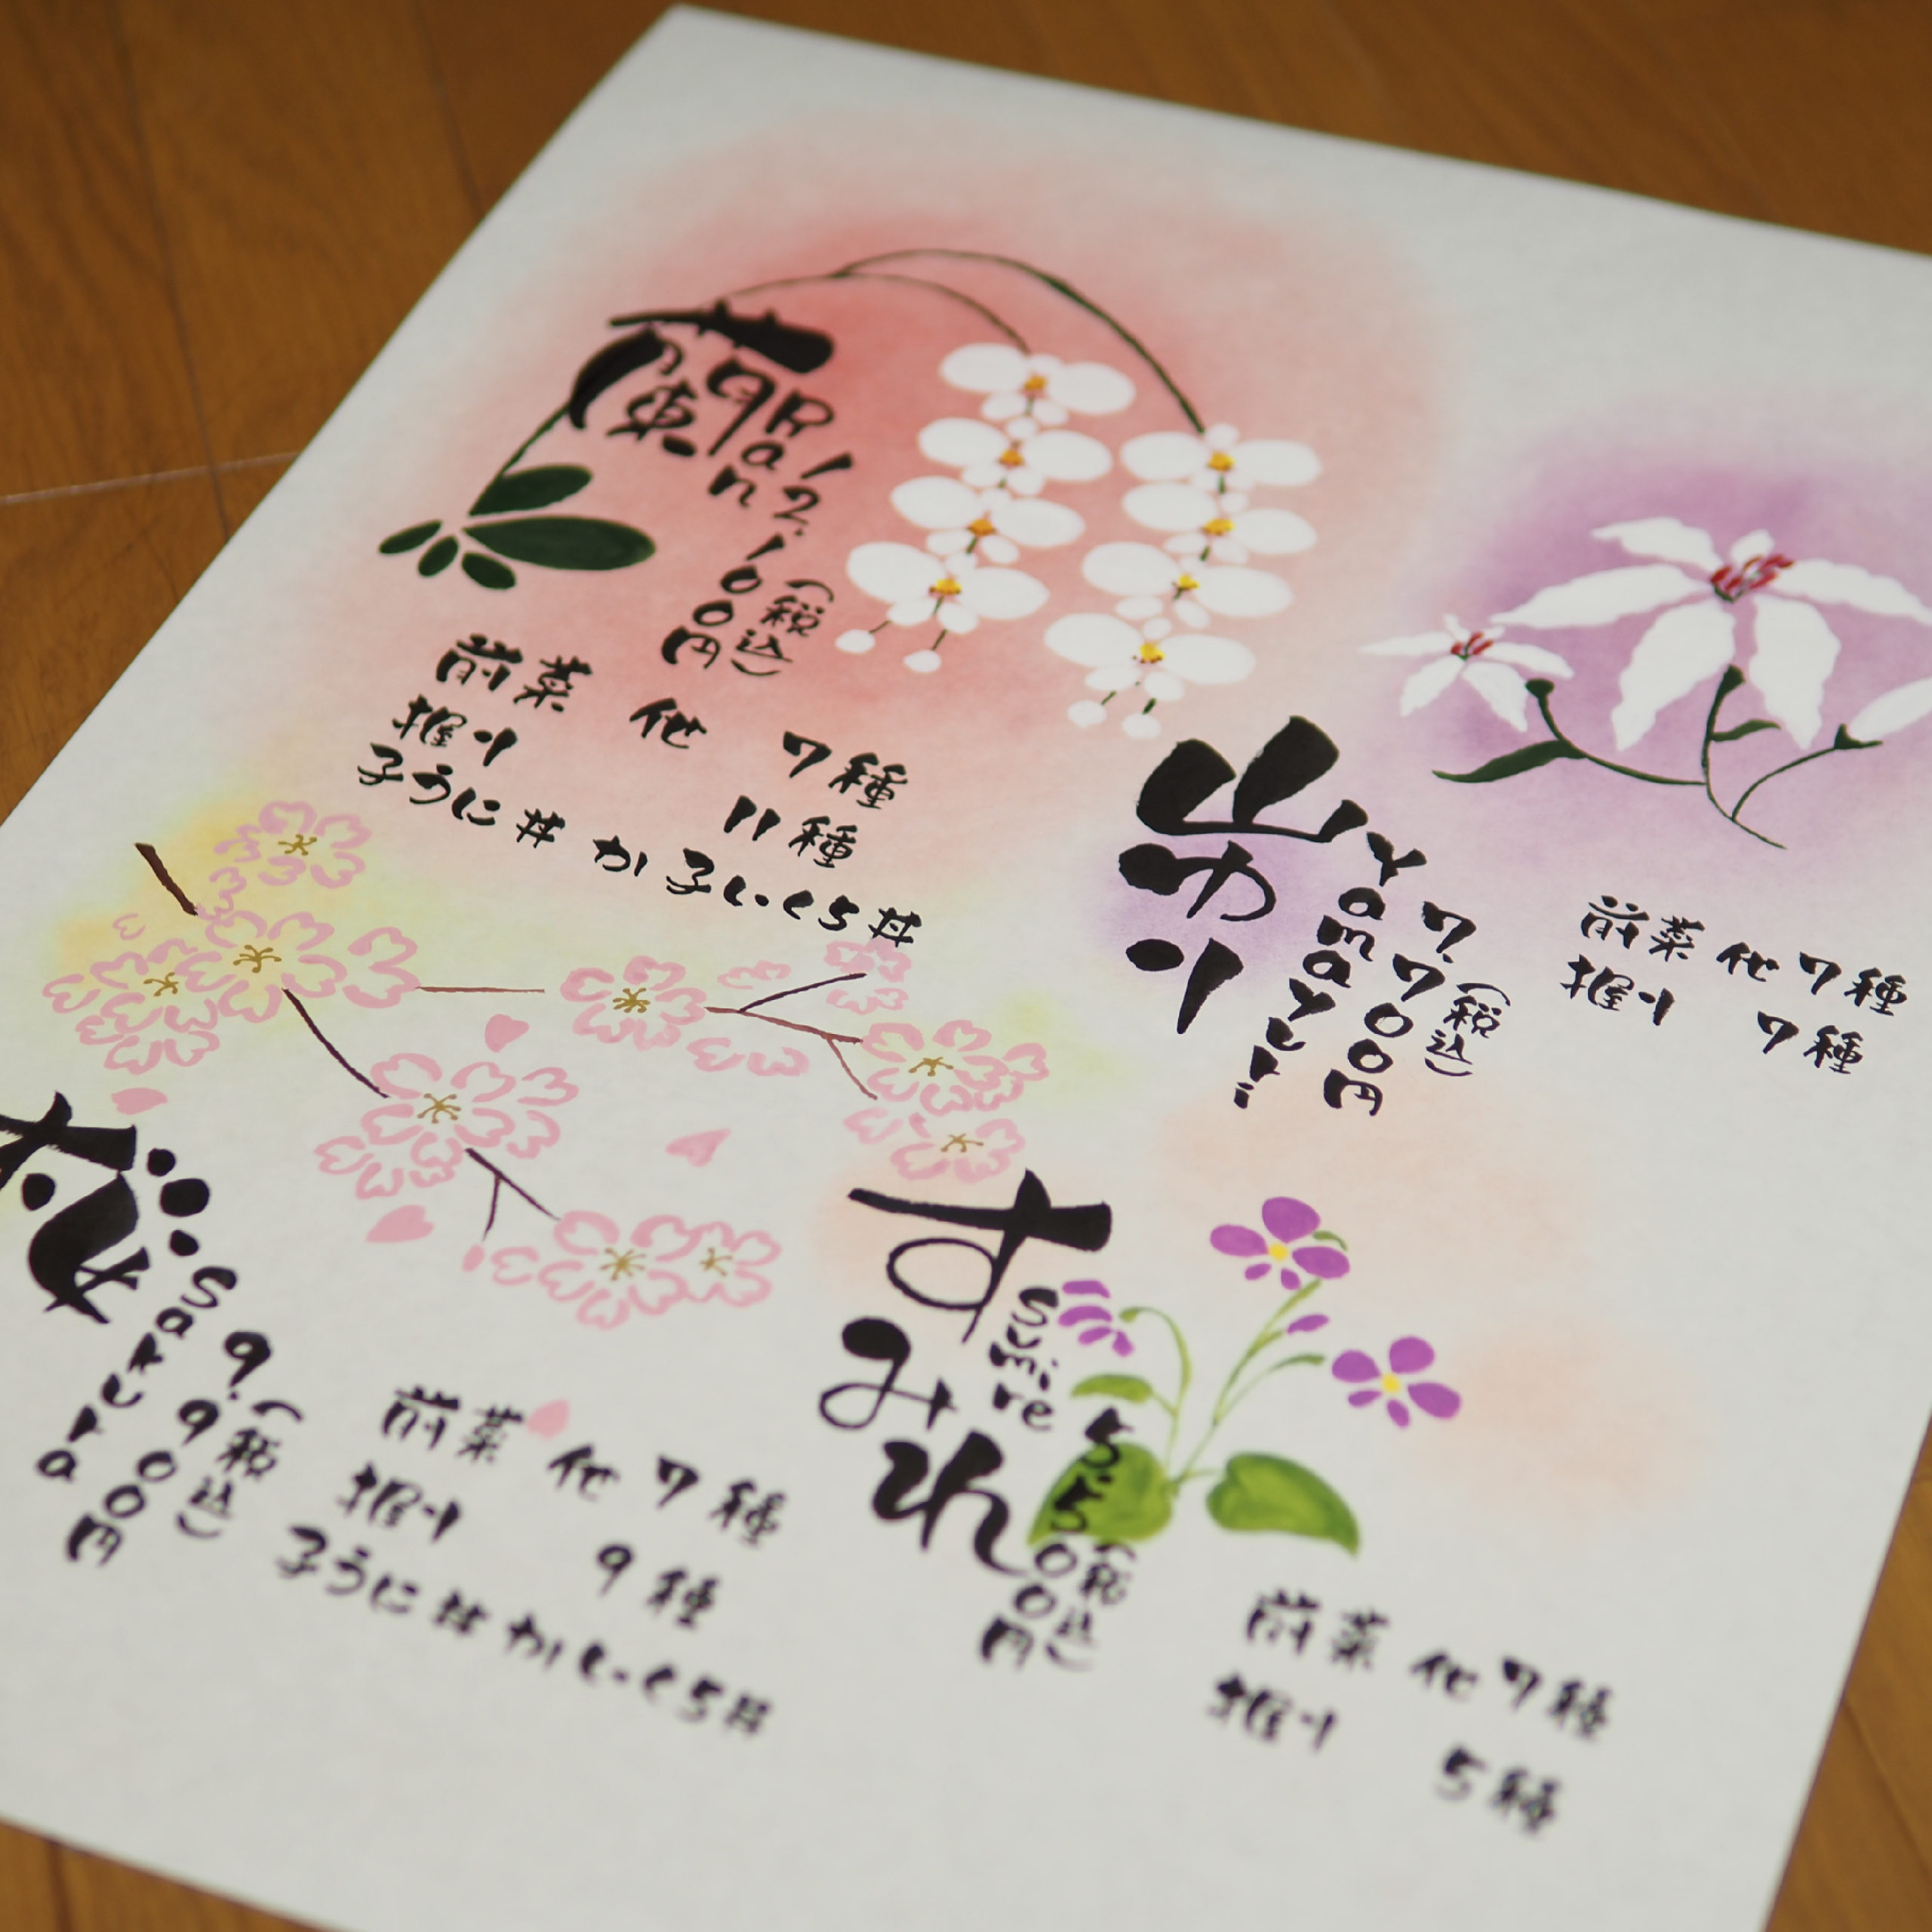 蘭
Ran
12.100円
(税込)
前菜 他 7種
握り 11種
子うに丼 か 子いくら丼
山ゆり
Yamayuri
7.700円
(税込)
前菜 他 7種
握り 7種
桜
Sakura
9.900円
(税込)
前菜 他 7種
握り 9種
子うに丼 か いくら丼
すみれ
Sumire
5.500円
(税込)
前菜 他 7種
握り 5種